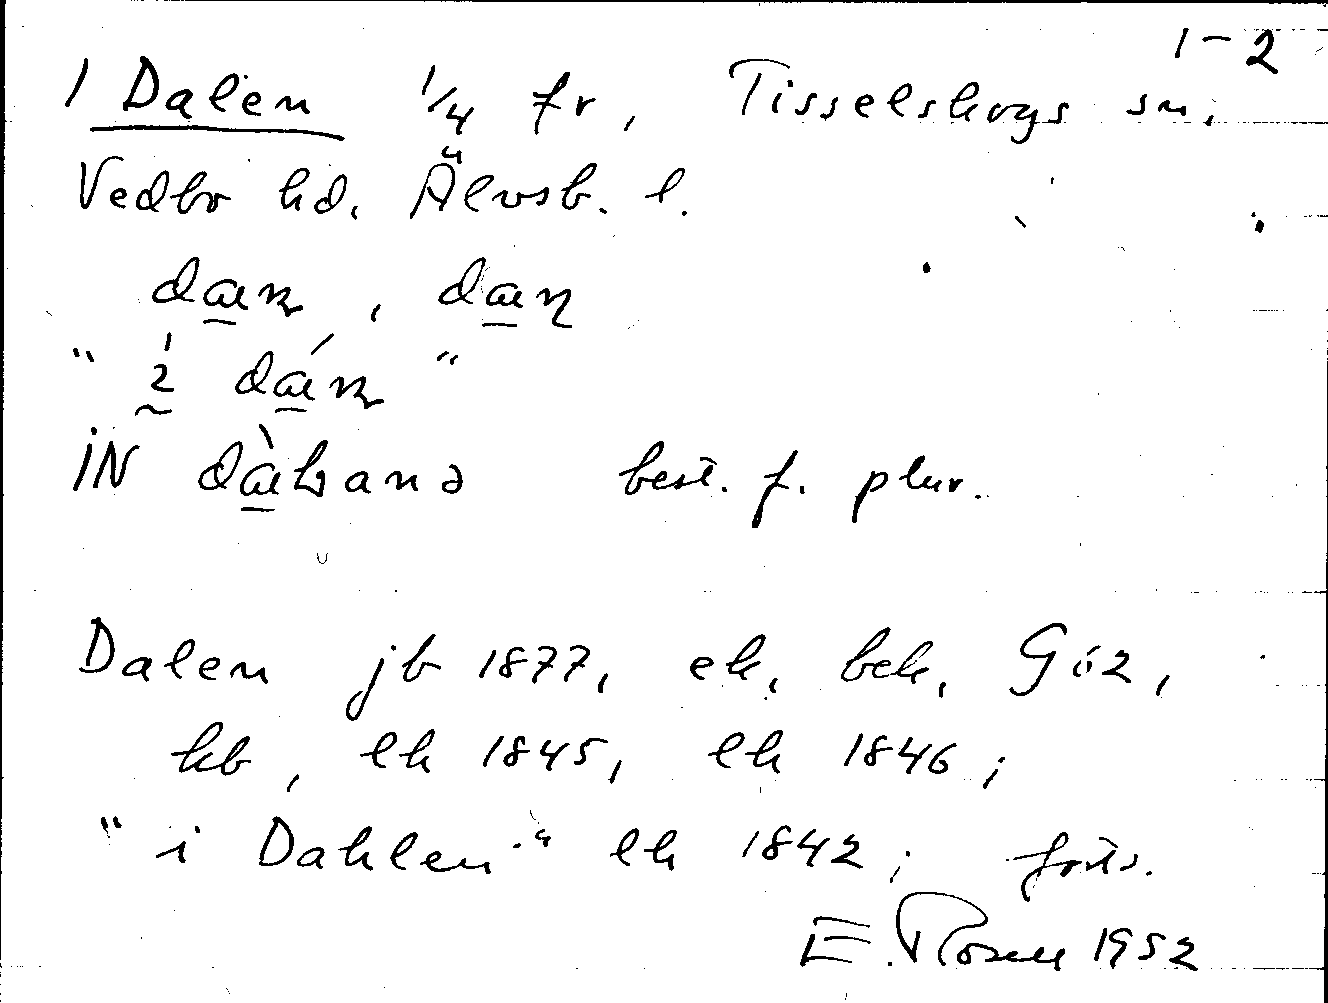 1-2
1 Dalen 1/4 fr, Tisselskogs sn,
Vedbo hd. Älvsb. l.
best. f. plur.
Dalen jb 1877, ek, bek, Göz,
kb, lh 1845, lh 1846;
"i Dahlen" lh 1842; forts.
E. Rosell 1952